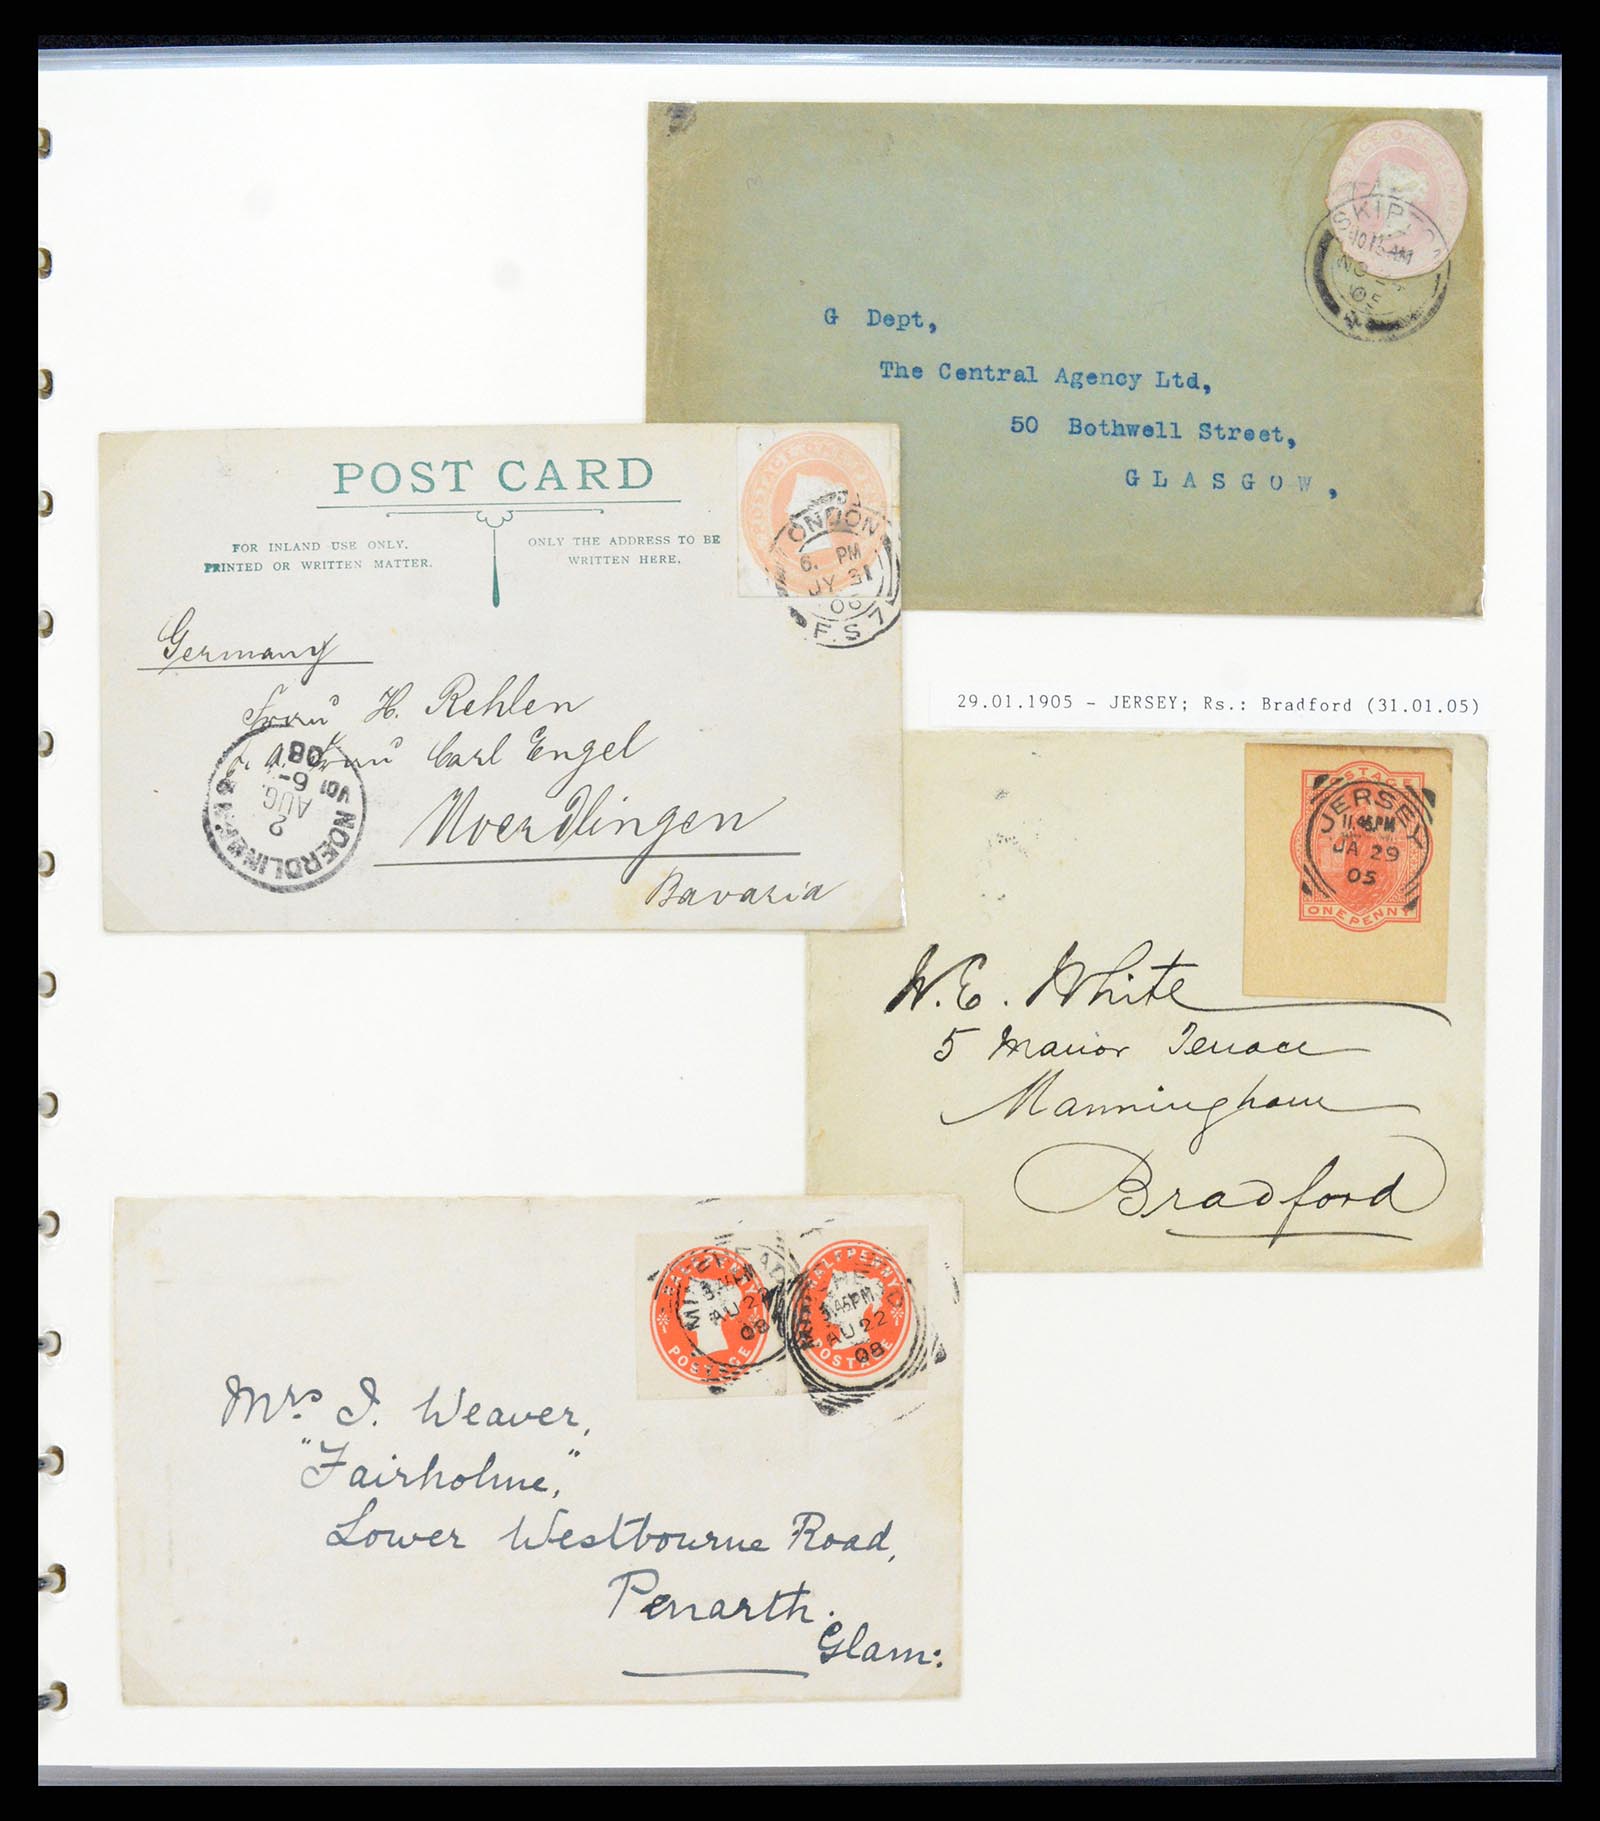 POSTAGE ONE PENNY
SKIPTON
10 15 AM
NO
05
G Dept,
The Central Agency Ltd,
50 Bothwell Street,
GLASGOW,
POST CARD
FOR INLAND USE ONLY.
PRINTED OR WRITTEN MATTER.
ONLY THE ADDRESS TO BE
WRITTEN HERE.
POSTAGE ONE PENNY
LONDON
6. PM
JY 31
F.S 7
Germany
Frau H. Rehlen
Frau Carl Engel
Noerdlingen
Bavaria
2
AUG.
6-
08
29.01.1905 - JERSEY; Rs.: Bradford (31.01.05)
POSTAGE
ONE PENNY
JERSEY
11.45PM
JA 29
05
W. E. White
5 Manor Terrace
Manningham
Bradford
HALFPENNY
POSTAGE
AU 22
08
HALFPENNY
POSTAGE
3.45PM
AU 22
08
Mrs. J. Weaver,
"Fairholme,"
Lower Westbourne Road,
Penarth.
Glam: